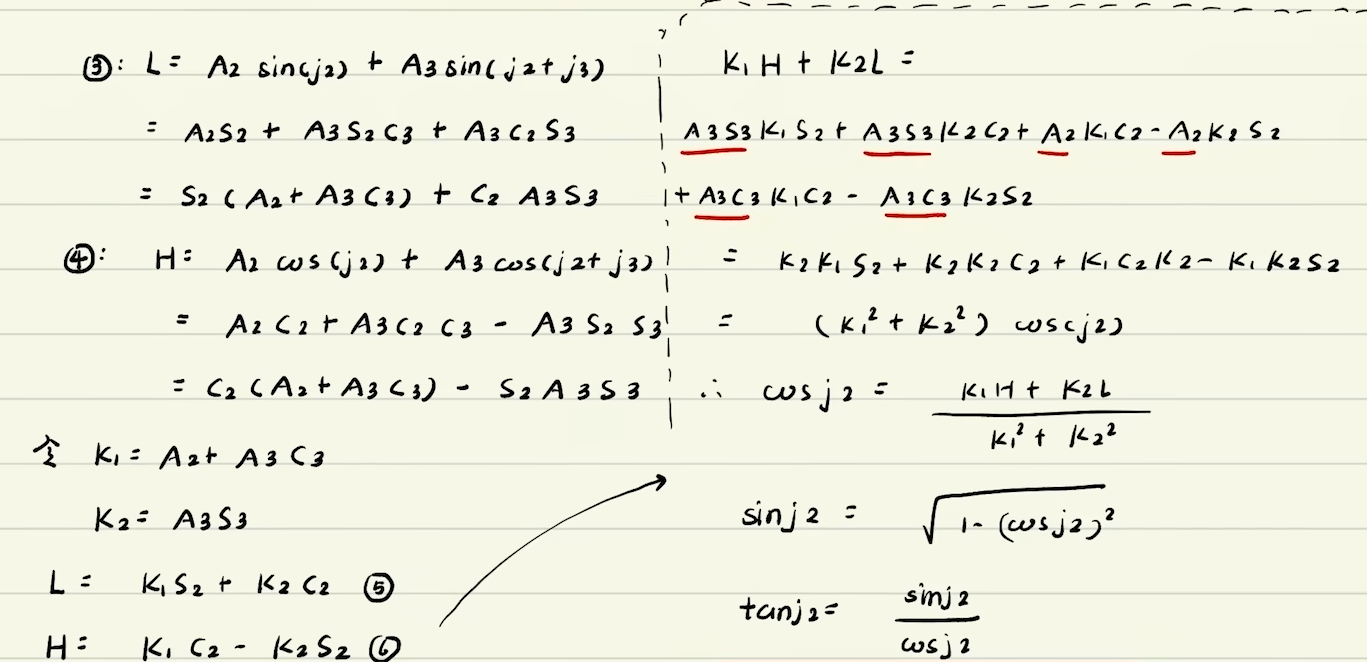 ③: L = A2 sin(j2) + A3 sin(j2+j3)
= A2S2 + A3S2C3 + A3C2S3
= S2(A2+A3C3) + C2A3S3
④: H = A2 cos(j2) + A3 cos(j2+j3)
= A2C2 + A3C2C3 - A3S2S3
= C2(A2+A3C3) - S2A3S3
令 K1 = A2+A3C3
K2 = A3S3
L = K1S2 + K2C2 ⑤
H = K1C2 - K2S2 ⑥
K1H + K2L =
A3S3K1S2 + A3S3K2C2 + A2K1C2 - A2K2S2
+ A3C3K1C2 - A3C3K2S2
= K2K1S2 + K2K2C2 + K1C2K2 - K1K2S2
= (K1² + K2²) cos(j2)
∴ cosj2 = (K1H + K2L) / (K1² + K2²)
sinj2 = √(1-(cosj2)²)
tanj2 = sinj2 / cosj2